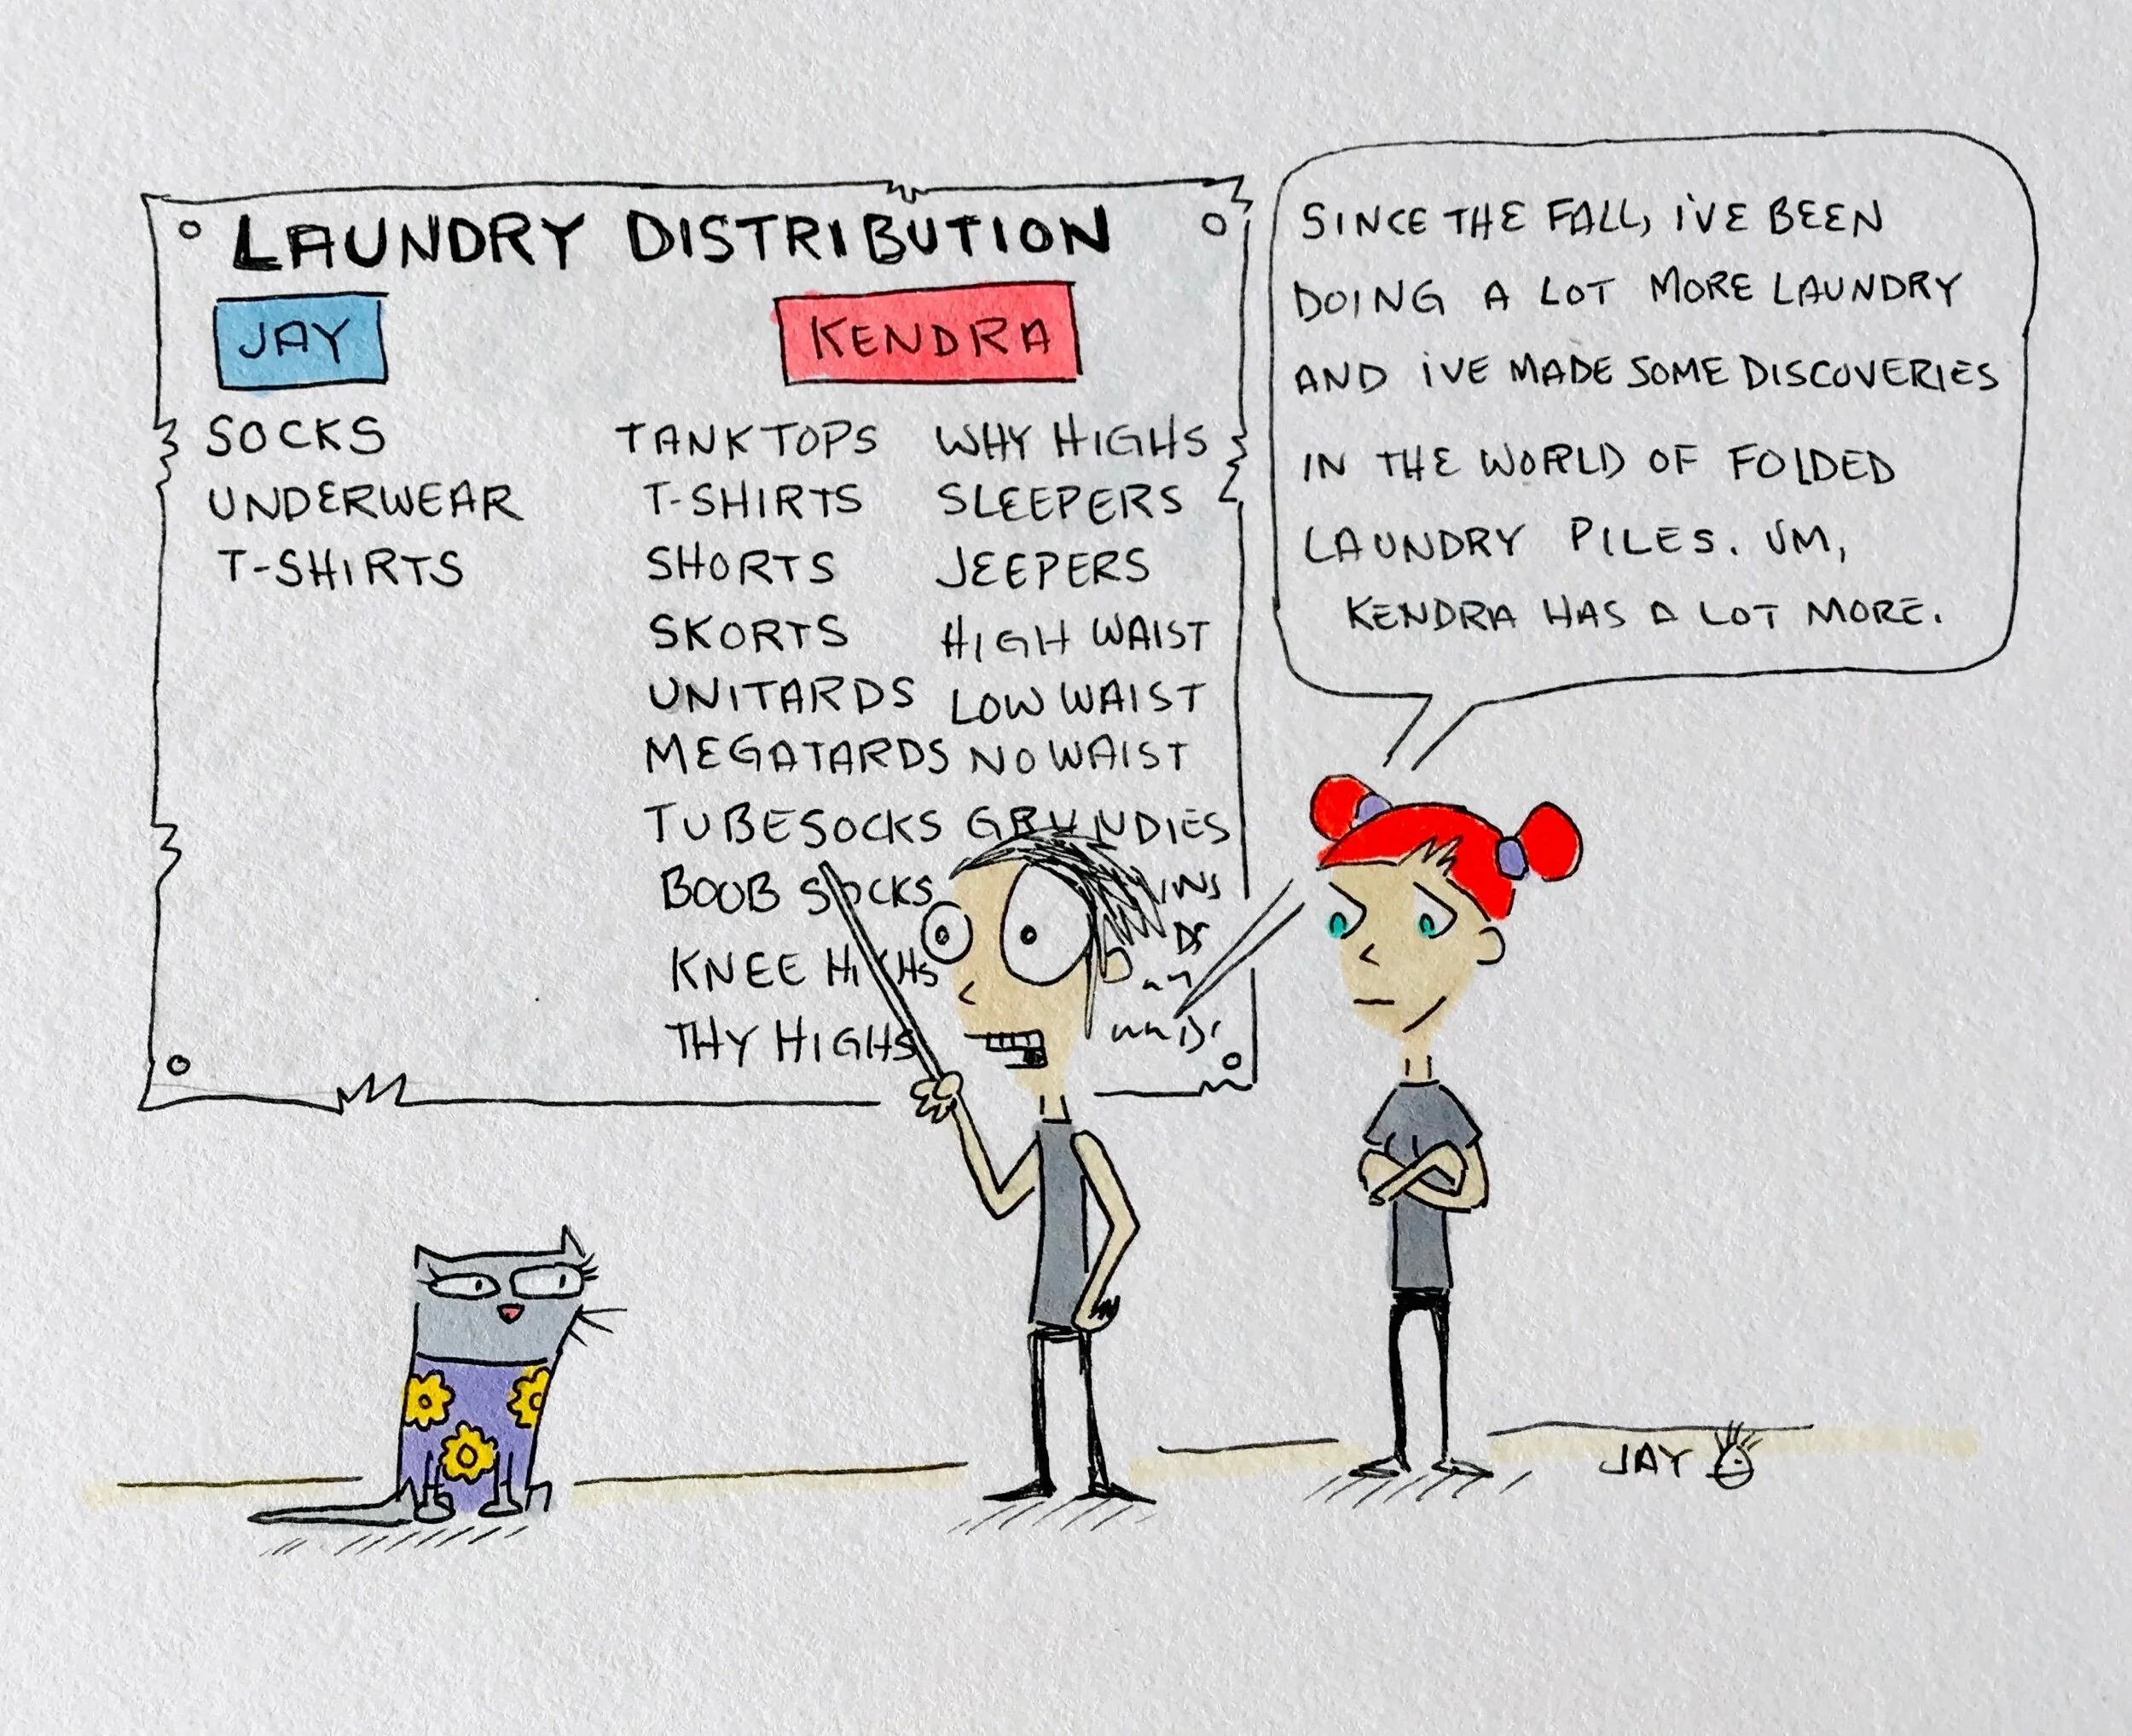 LAUNDRY DISTRIBUTION
JAY
SOCKS
UNDERWEAR
T-SHIRTS
KENDRA
TANKTOPS
T-SHIRTS
SHORTS
SKORTS
UNITARDS
MEGATARDS
TUBESOCKS
BOOB SOCKS
KNEE HIGHS
THY HIGHS
WHY HIGHS
SLEEPERS
JEEPERS
HIGH WAIST
LOW WAIST
NO WAIST
GRUNDIES
SINCE THE FALL, I'VE BEEN
DOING A LOT MORE LAUNDRY
AND I'VE MADE SOME DISCOVERIES
IN THE WORLD OF FOLDED
LAUNDRY PILES. UM,
KENDRA HAS A LOT MORE.
JAY